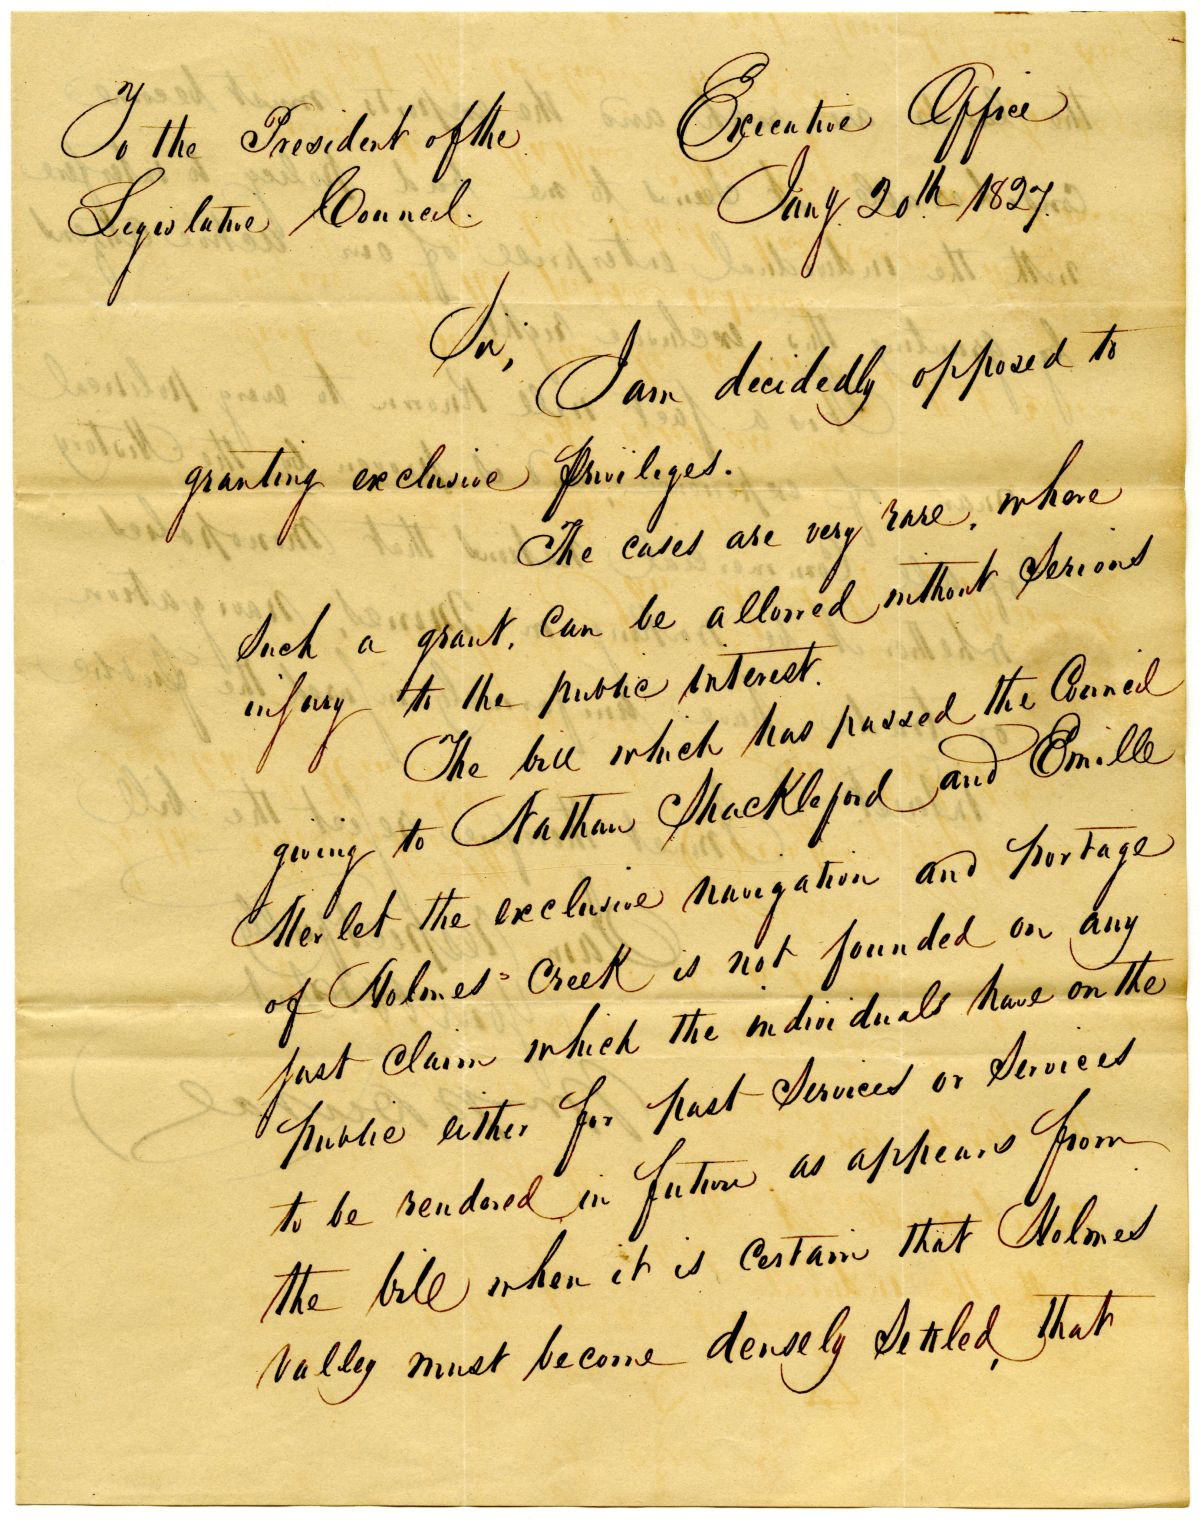 To the President of the
Legislative Council.
Executive Office
Jany 20th 1827.
Sir,
I am decidedly opposed to
granting exclusive Privileges.
The cases are very rare, where
such a grant, can be allowed without serious
injury to the public interest.
The bill which has passed the Council
giving to Nathan Shackleford and Emille
Merlet the exclusive navigation and portage
of Holmes' Creek is not founded on any
just claim which the individuals have on the
public either for past services or services
to be rendered in future as appears from
the bill when it is certain that Holmes
valley must become densely settled, that